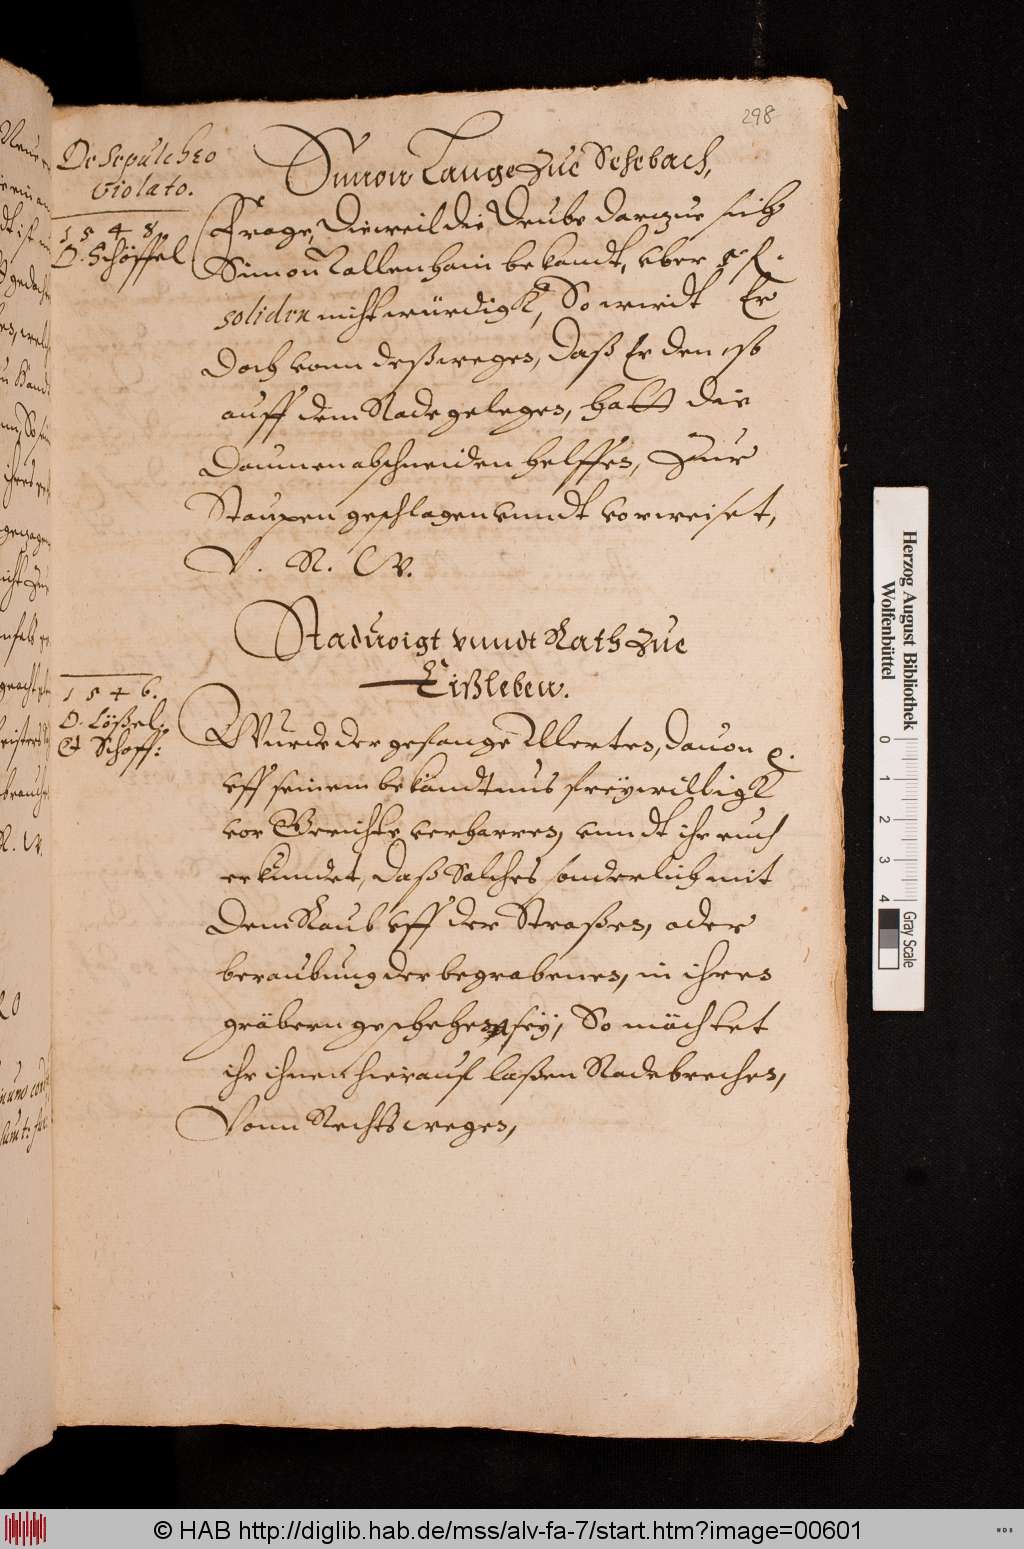 298
De Sepulchro
Violato.
Simon Lange zue Sehebach,
1 5 4 8.
D. Schöffel
Frage, Dieweil die Deube darzue sich
Simon Tallenhain bekandt, vber
solidru nicht würdigk, So wirdt Er
Doch vonn deßwegen, daß Er den
auff dem Rade gelegen, hatt die
Daumen abschneiden helffen, Zur
Staupen geschlagen vnndt vorweiset,
V. R. W.
Stadtvoigt vnndt Rath zue
Eißleben.
1 5 4 6.
D. Lößel:
Et Schoff:
Wurde der gefangene Mertes, dauon e.
vff seinem bekandtnus freywilligk
vor Gerichte verharren, vnndt ihr euch
erkundet, daß Solches sonderlich mit
Dem Raub vff der Straßen, oder
beraubung der begrabenen, in ihren
gräbern geschehen sey, So möchtet
ihr ihnen hierauf laßen Radebrechen,
Vonn Rechts wegen,
Herzog August Bibliothek
Wolfenbüttel
0 1 2 3 4
Gray Scale
© HAB http://diglib.hab.de/mss/alv-fa-7/start.htm?image=00601